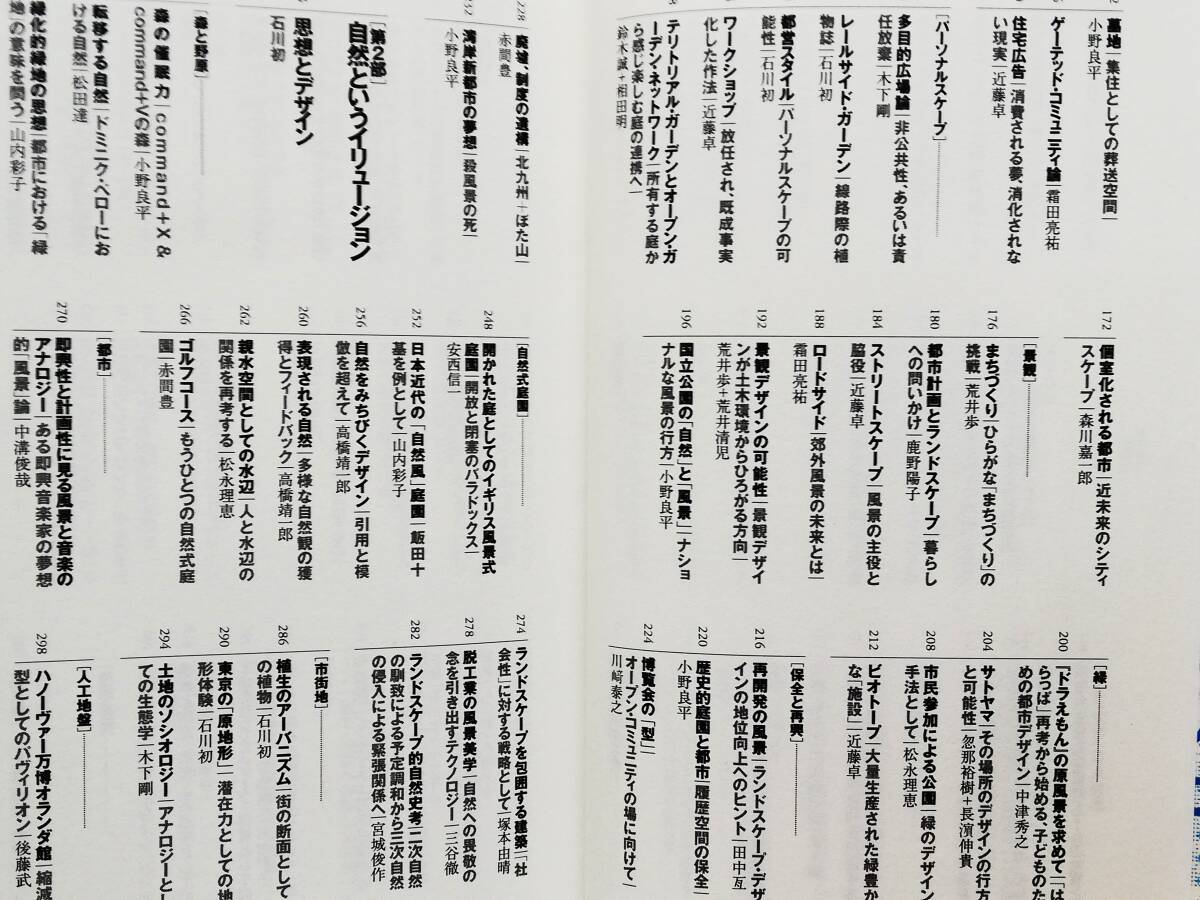 墓地|集住としての葬送空間|
小野良平
ゲーテッド・コミュニティ論|霜田亮祐
住宅広告|消費される夢、消化されな
い現実|近藤卓
[パーソナルスケープ]
多目的広場論|非公共性、あるいは責
任放棄|木下剛
レールサイド・ガーデン|線路際の植
物誌|石川初
都営スタイル|パーソナルスケープの可
能性|石川初
ワークショップ|放任され、既成事実
化した作法|近藤卓
テリトリアル・ガーデンとオープン・ガ
ーデン・ネットワーク|所有する庭か
ら感じ楽しむ庭の連携へ|
鈴木誠+相田明
172
個室化される都市|近未来のシティ
スケープ|森川嘉一郎
[景観]
176
まちづくり|ひらがな「まちづくり」の
挑戦|荒井歩
180
都市計画とランドスケープ|暮らし
への問いかけ|鹿野陽子
184
ストリートスケープ|風景の主役と
脇役|近藤卓
188
ロードサイド|郊外風景の未来とは|
霜田亮祐
192
景観デザインの可能性|景観デザイ
ンが土木環境からひろがる方向|
荒井歩+荒井清児
196
国立公園の「自然」と「風景」|ナショ
ナルな風景の行方|小野良平
[緑]
200
『ドラえもん』の原風景を求めて|「は
らっぱ」再考から始める、子どものた
めの都市デザイン|中津秀之
204
サトヤマ|その場所のデザインの行方
と可能性|忽那裕樹+長濵伸貴
208
市民参加による公園|緑のデザイン
手法として|松永理恵
212
ビオトープ|大量生産された緑豊か
な「施設」|近藤卓
[保全と再興]
216
再開発の風景|ランドスケープ・デザ
インの地位向上へのヒント|田中亙
220
歴史的庭園と都市|履歴空間の保全|
小野良平
224
博覧会の「型」|
オープン・コミュニティの場に向けて|
川﨑泰之
228
廃墟、制度の遺構|北九州+ぼた山|
赤間豊
232
湾岸新都市の夢想|殺風景の死|
小野良平
[第2部]
自然というイリュージョン
思想とデザイン
石川初
[森と野原]
森の催眠力|command+X &
command+Vの森|小野良平
転移する自然|ドミニク・ペローにお
ける自然|松田達
緑化的緑地の思想|都市における「緑
地」の意味を問う|山内彩子
[自然式庭園]
248
開かれた庭としてのイギリス風景式
庭園|開放と閉塞のパラドックス|
安西信一
252
日本近代の「自然風」庭園|飯田十
基を例として|山内彩子
256
自然をみちびくデザイン|引用と模
倣を超えて|高橋靖一郎
260
表現される自然|多様な自然観の獲
得とフィードバック|高橋靖一郎
262
親水空間としての水辺|人と水辺の
関係を再考する|松永理恵
266
ゴルフコース|もうひとつの自然式庭
園|赤間豊
[都市]
270
即興性と計画性に見る風景と音楽の
アナロジー|ある即興音楽家の夢想
的「風景」論|中溝俊哉
274
ランドスケープを包囲する建築|「社
会性」に対する戦略として|塚本由晴
278
脱工業の風景美学|自然への畏敬の
念を引き出すテクノロジー|三谷徹
282
ランドスケープ的自然史考|二次自然
の馴致による予定調和から三次自然
の侵入による緊張関係へ|宮城俊作
[市街地]
286
植生のアーバニズム|街の断面として
の植物|石川初
290
東京の「原地形」|潜在力としての地
形体験|石川初
294
土地のソシオロジー|アナロジーとし
ての生態学|木下剛
[人工地盤]
298
ハノーヴァー万博オランダ館|縮減
型としてのパヴィリオン|後藤武